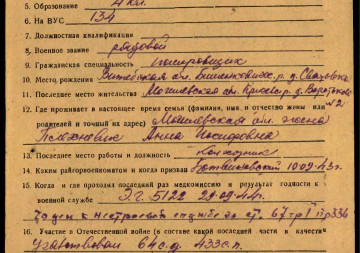 5. Образование 4 кл.
6. На ВУС 134
7. Должностная квалификация
8. Военное звание рядовой
9. Гражданская специальность
10. Место рождения Витебская обл. р. д.
11. Последнее место жительства Могилевская обл. д.
12. Где проживает в настоящее время семья (фамилия, имя и отчество жены или
родителей и точный их адрес) Могилевская обл. жена
Анна
13. Последнее место работы и должность колхозник
14. Каким райгорвоенкоматом и когда призван 10.09.43 г.
15. Когда и где проходил последний раз медкомиссию и результат годности к
военной службе Э.Г. 5122 29.09.44 г.
Годен к нестроевой службе по ст. 67 гр I пр 336
16. Участие в Отечественной войне (в составе какой последней части и в качестве
Участвовал 64 с.д. 433 с.п.